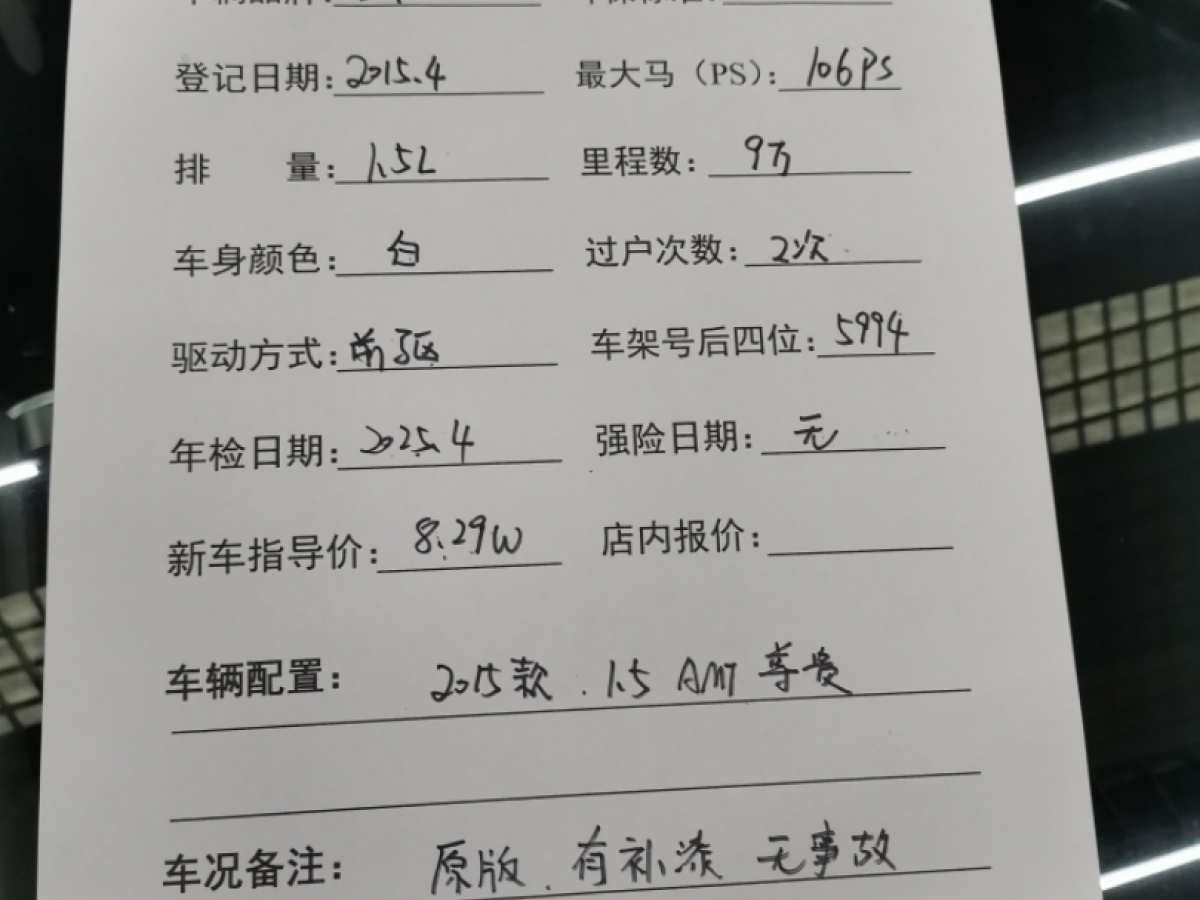 登记日期：2015.4 最大马（PS）：106PS
排 量：1.5L 里程数：9万
车身颜色：白 过户次数：2次
驱动方式：前驱 车架号后四位：5994
年检日期：2025.4 强险日期：无
新车指导价：8.29W 店内报价：
车辆配置：2015款.1.5 AMT 尊贵
车况备注：原版.有补漆 无事故